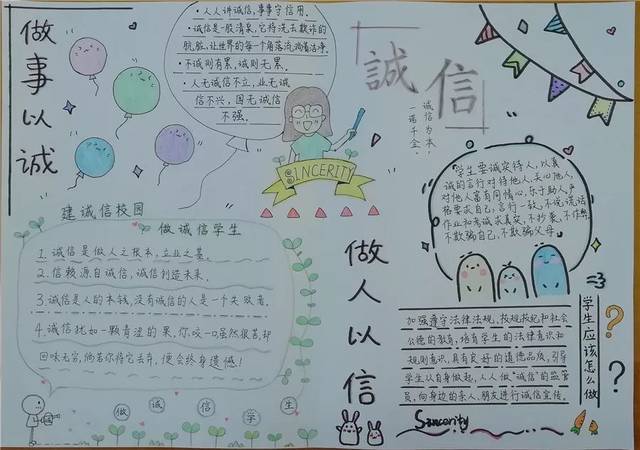 做事以诚
·人人讲诚信,事事守信用.
·诚信是一股清泉,它将洗去欺诈的
肮脏,让世界的每一个角落流淌着洁净.
·不诚则有累,诚则无累.
·人无诚信不立,业无诚
信不兴,国无诚信
不强.
SINCERITY
誠信
诚信为本,
一诺千金.
学生要诚实待人,以真
诚的言行对待他人,关心他人,
对他人富有同情心,乐于助人,严
格要求自己,言行一致,不说谎话,
作业和考试求真实,不抄袭,不作弊,
不欺骗自己,不欺骗父母.
建诚信校园
做诚信学生
1.诚信是做人之根本,立业之基.
2.信赖源自诚信,诚信创造未来.
3.诚信是人的本钱,没有诚信的人是一个失败者.
4.诚信犹如一颗青涩的果,你咬一口虽然很苦,却
回味无穷,倘若你将它去弃,便会终身遗憾!
做诚信学生
做人以信
学生应该怎么做
??
加强遵守法律法规,校规校纪和社会
公德的教育,培育学生的法律意识和
规则意识,具有良好的道德品质,引导
学生从自身做起,人人做“诚信”的监管
员,向身边的亲人、朋友进行诚信宣传.
Sincerity